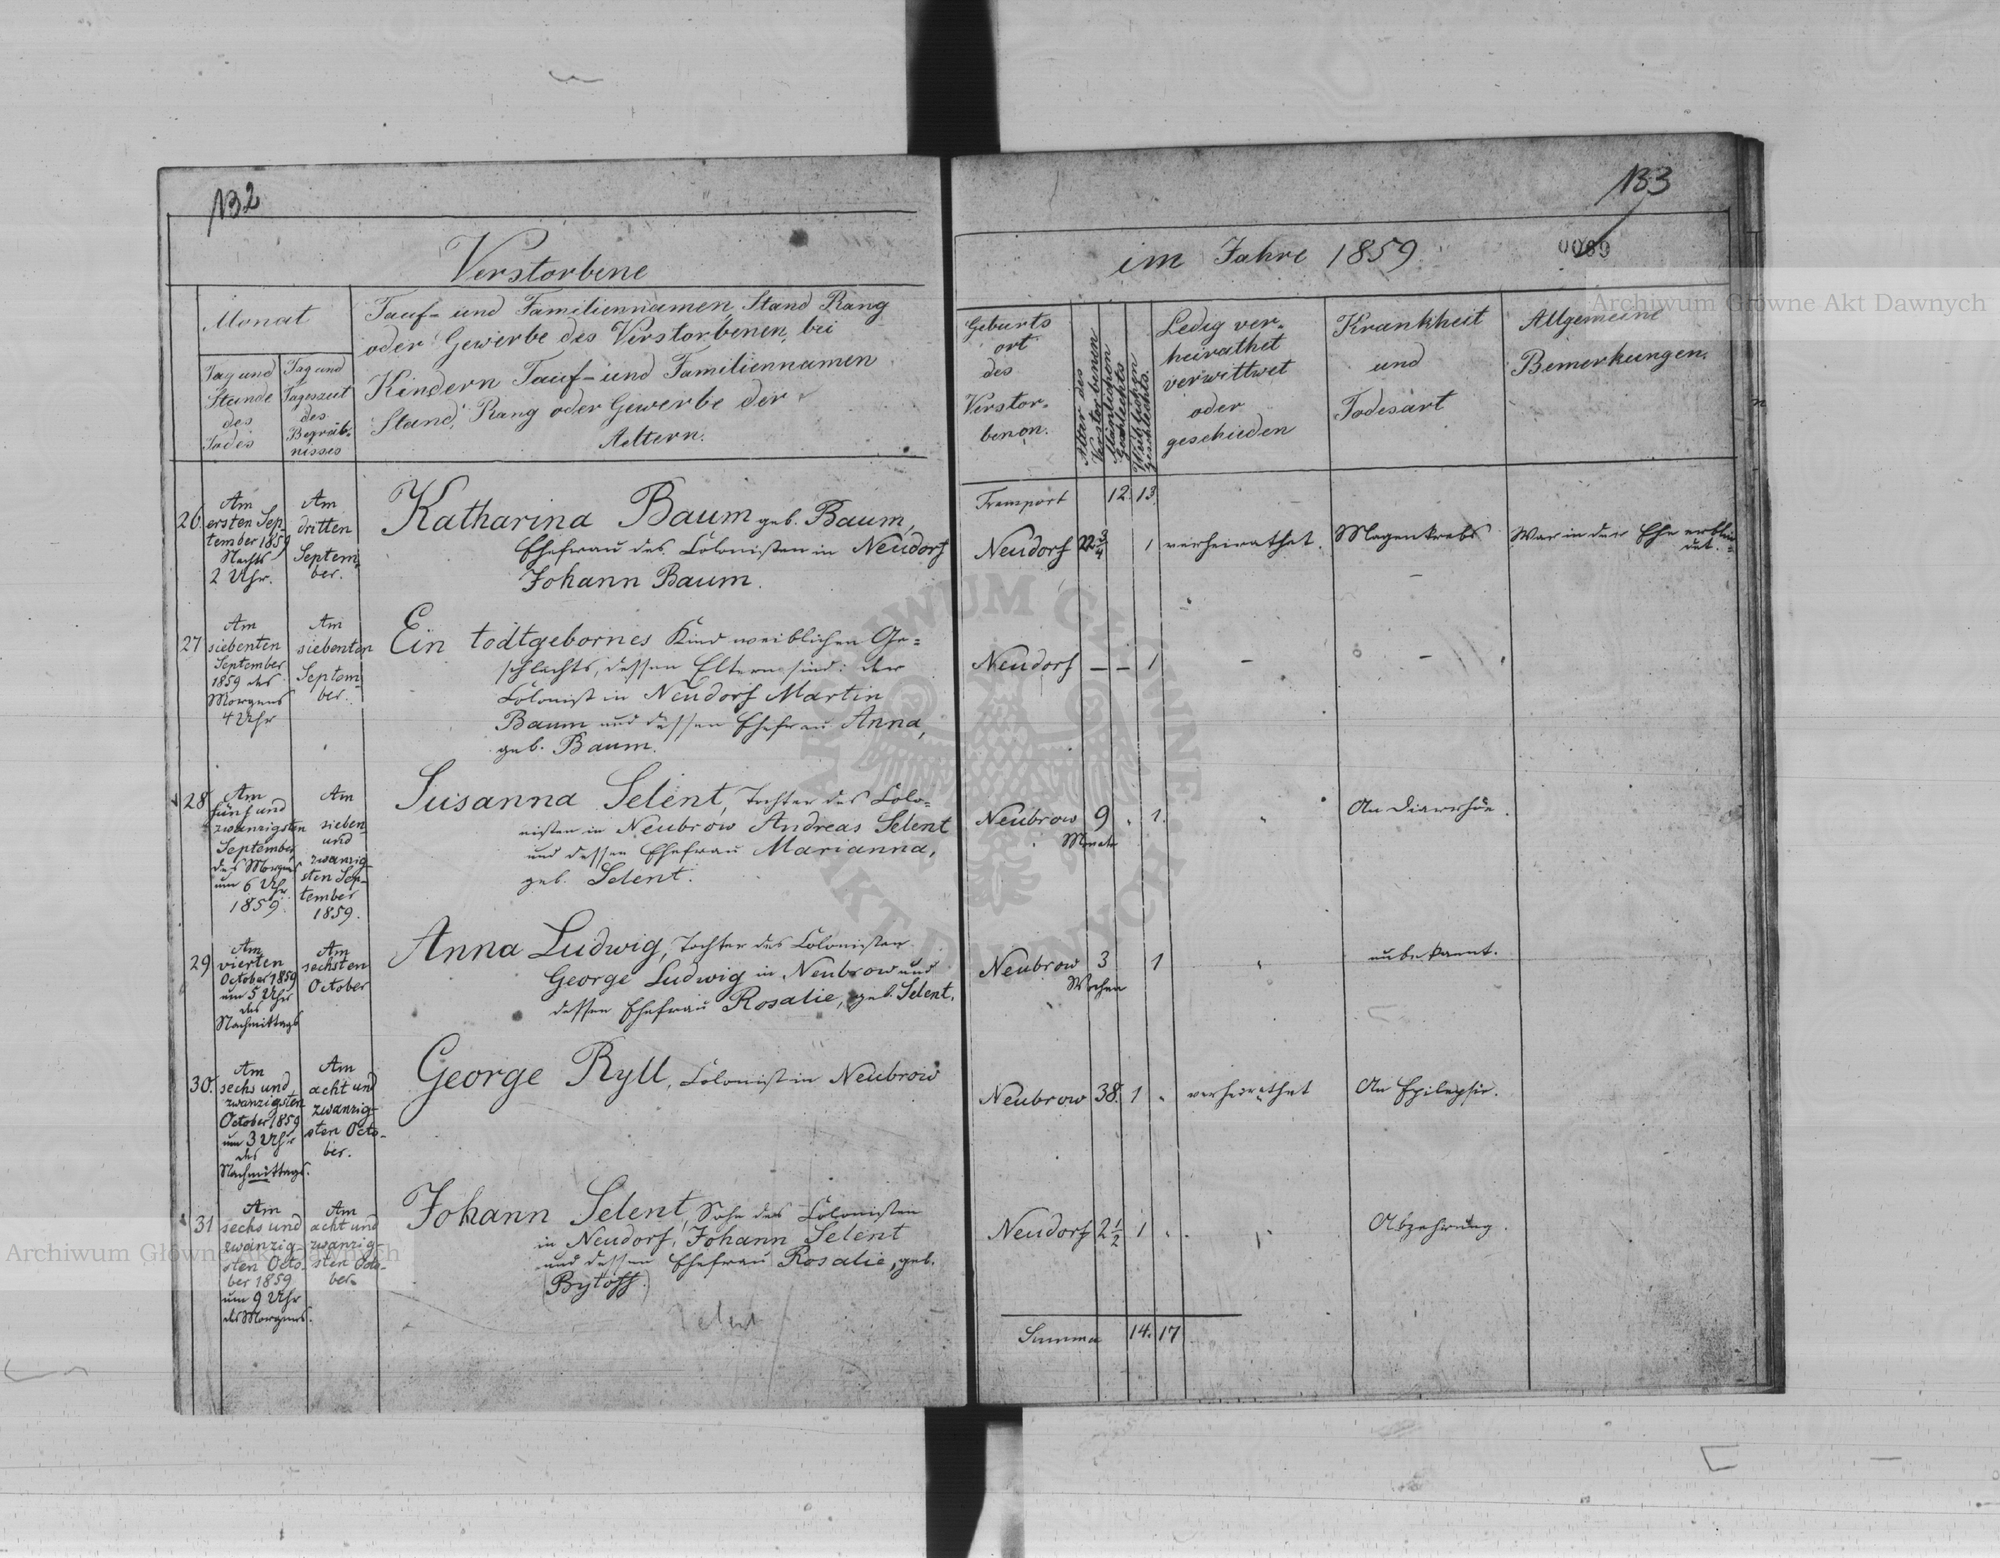 132
Verstorbene
Monat
Tag und
Stunde
des
Todes
Tag und
Tageszeit
des
Begräb-
nisses
Tauf- und Familiennamen, Stand Rang
oder Gewerbe des Verstorbenen, bei
Kindern Tauf- und Familiennamen
Stand, Rang oder Gewerbe der
Aeltern.
26.
Am
ersten Sep-
tember 1859
Nachts
2 Uhr.
Am
dritten
Septem-
ber.
Katharina Baum geb. Baum,
Ehefrau des Colonisten in Neudorf
Johann Baum.
27
Am
siebenten
September
1859 des
Morgens
4 Uhr
Am
siebenten
Septem-
ber.
Ein todtgebornes Kind weiblichen Ge-
schlechts, dessen Eltern sind: der
Colonist in Neudorf Martin
Baum und dessen Ehefrau Anna,
geb. Baum.
28
Am
fünf und
zwanzigsten
September
des Morgens
um 6 Uhr
1859.
Am
sieben
und
zwanzig-
sten Sep-
tember
1859.
Susanna Selent, Tochter des Colo-
nisten in Neubrow Andreas Selent
und dessen Ehefrau Marianna,
geb. Selent.
29
Am
vierten
October 1859
um 5 Uhr
des
Nachmittags
Am
sechsten
October
Anna Ludwig, Tochter des Colonisten
George Ludwig in Neubrow und
dessen Ehefrau Rosalie, geb. Selent.
30.
Am
sechs und
zwanzigsten
October 1859
um 3 Uhr
des
Nachmittags.
Am
acht und
zwanzig-
sten Octo-
ber.
George Ryll, Colonist in Neubrow
31
Am
sechs und
zwanzig-
sten Octo-
ber 1859
um 9 Uhr
des Morgens.
Am
acht und
zwanzig-
sten Octo-
ber.
Johann Selent, Sohn des Colonisten
in Neudorf, Johann Selent
und dessen Ehefrau Rosalie, geb.
(Bytoff.)
Selent
133
im Jahre 1859.
0089
Geburts
ort
des
Verstor-
benen.
Alter des
Verstorbenen
Männlichen
Geschlechts
Weiblichen
Geschlechts.
Ledig ver-
heirathet
verwittwet
oder
geschieden
Krankheit
und
Todesart
Allgemeine
Bemerkungen.
Transport 12. 13.
Neudorf 22 3/4 1 verheirathet. Magenkrebs War in der Ehe
Neudorf — — 1 — —
Neubrow 9 1. An Diarrhöe.
Monate
Neubrow 3 1 unbekannt.
Wochen
Neubrow 38. 1 verheirathet An Epilepsie.
Neudorf 2 1/2 1 Abzehrung.
Summa 14. 17
Archiwum Główne Akt Dawnych
Archiwum Główne Akt Dawnych
ARCHIWUM GŁÓWNE AKT DAWNYCH